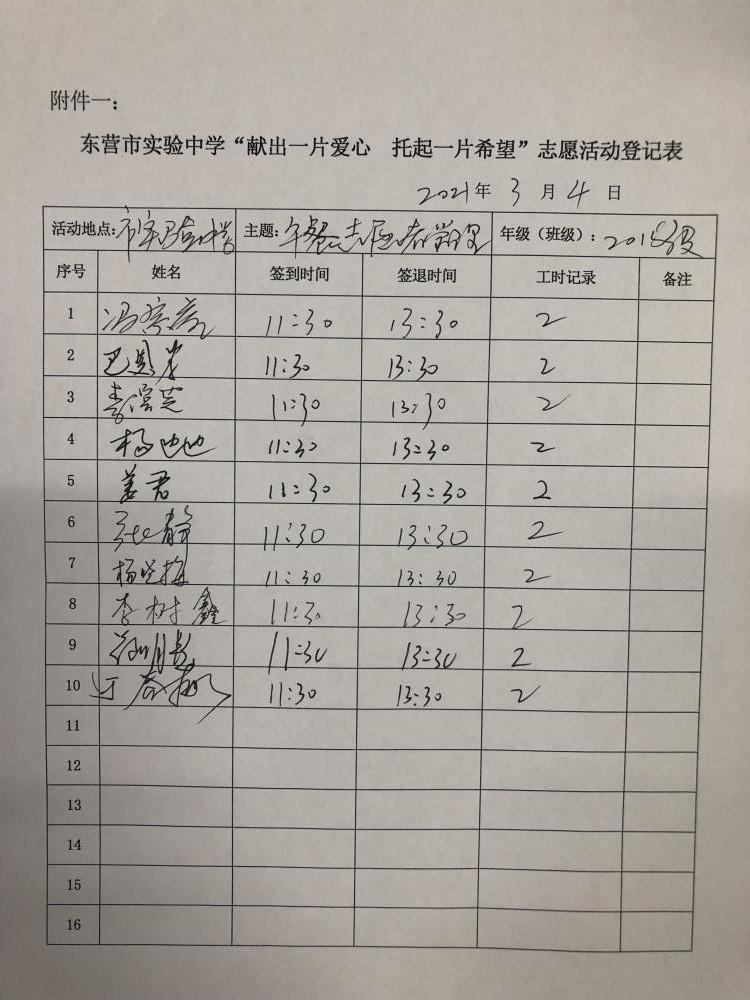 附件一：
东营市实验中学“献出一片爱心 托起一片希望”志愿活动登记表
2021年 3 月 4 日
活动地点：市实验中学 主题：午餐志愿者管理 年级（班级）：2018级
序号 姓名 签到时间 签退时间 工时记录 备注
1 11:30 13:30 2
2 11:30 13:30 2
3 11:30 13:30 2
4 杨 11:30 13:30 2
5 姜君 11:30 13:30 2
6 张静 11:30 13:30 2
7 杨晓梅 11:30 13:30 2
8 李树鑫 11:30 13:30 2
9 11:30 13:30 2
10 11:30 13:30 2
11
12
13
14
15
16